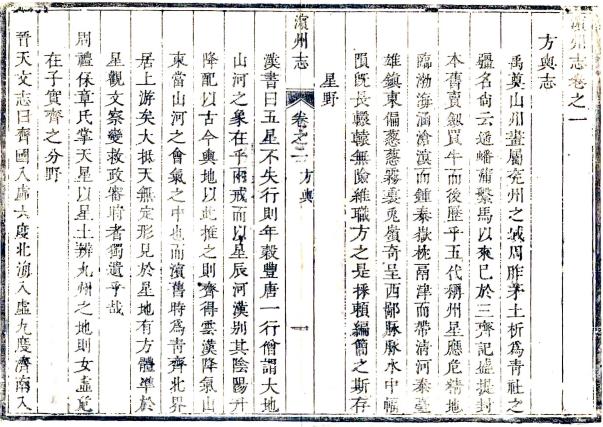 濱州志卷之一
方輿志
禹奠山州畫屬兗州之域周胙茅土析爲青社之
疆名尙云通蟠蒲繫馬以來已於三齊記墟提封
本舊賣劔買牛而後歷乎五代稱州星應危精地
臨渤海涵滄溟而鍾泰嶽枕鬲津而帶清河泰臺
雄鎭東偏蔥蔥霧裏兎嶺奇呈西鄙脉脉水中幅
隕旣長轅轅無險維職方之是採賴編簡之斯存
星野
濱州志 卷之一 方輿 一
漢書曰五星不失行則年穀豐唐一行僧謂天地
山河之象在乎兩戒而以星辰河漢别其陰陽升
降配以古今輿地以此推之則齊得雲漢降氣山
東當山河之會氣之中也而濱舊時爲靑齊北界
居上游矣大抵天無定形見於星地有方體準於
星觀文察變救政審時者獨遺乎哉
周禮保章氏掌天星以星土辨九州之地則女虛危
在子實齊之分野
晉天文志曰齊國入虛六度北海入虛九度濟南入